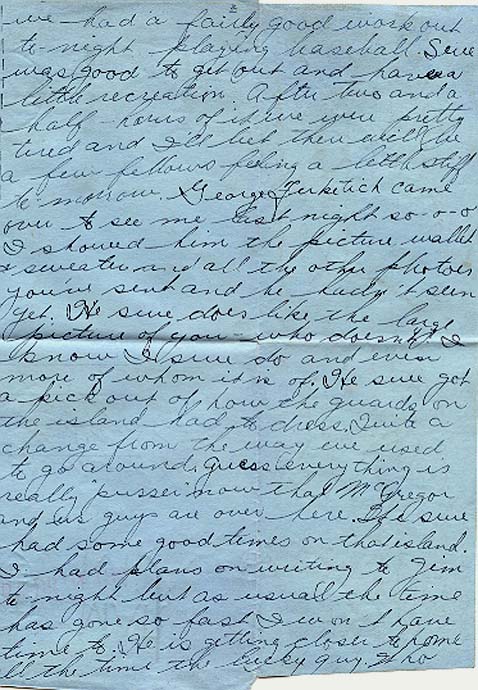 2
we had a fairly good work out
to-night playing baseball. Sure
was good to get out and have a
little recreation. After two and a
half - hours of it we were pretty
tired and I'll bet there will be
a few fellows feeling a little stiff
to-morrow. George Terketich came
over to see me last night so-o-o
I showed him the picture wallet
& sweater and all the other photos
you've sent and he hadn't seen
yet. He sure does like the large
picture of you - who doesn't, I
know I sure do and even
more of whom it is of. He sure got
a kick out of how the guards on
the island had to dress. Quite a
change from the way we used
to go around, guess everything is
really "pusser" now that McGregor
and us guys are over here. We sure
had some good times on that island.
I had plans on writing to Jim
to-night but as usual the time
has gone so fast I won't have
time to. He is getting closer to home
all the time the lucky guy. Who